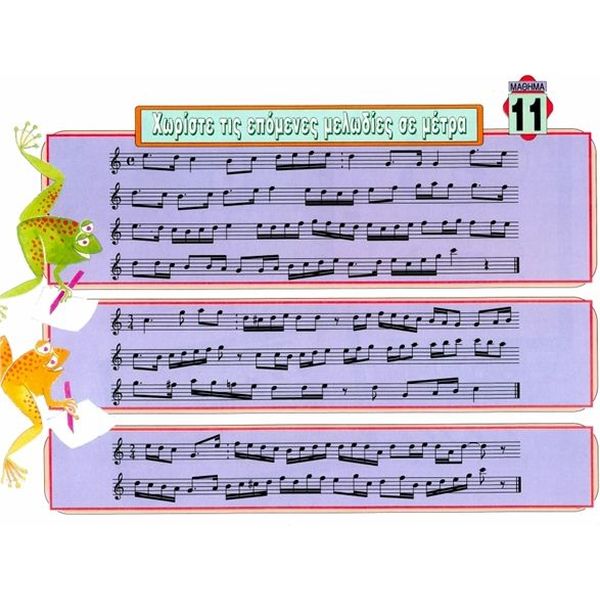 ΜΑΘΗΜΑ
11
Χωρίστε τις επόμενες μελωδίες σε μέτρα